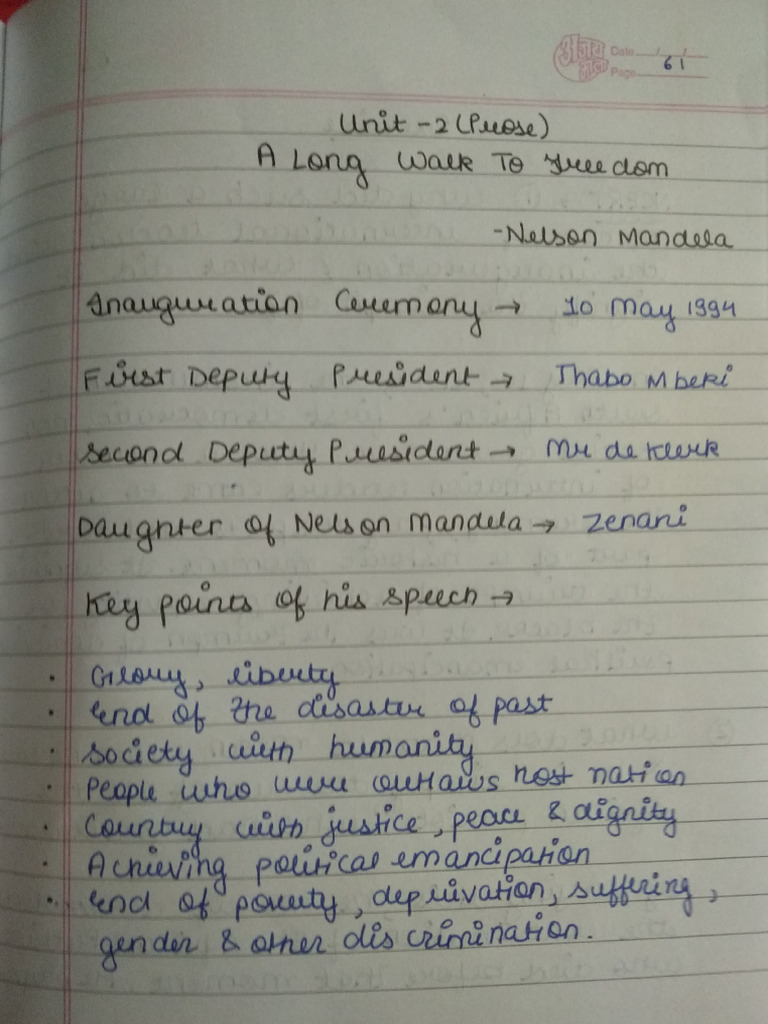 Date / /
Page 61
Unit - 2 (Prose)
A Long Walk To Freedom
- Nelson Mandela
Inauguration Ceremony → 10 May 1994
First Deputy President → Thabo Mbeki
Second Deputy President → Mr de Klerk
Daughter of Nelson Mandela → Zenani
Key points of his speech →
• Glory, liberty
• End of the disaster of past
• Society with humanity
• People who were outlaws host nation
• Country with justice, peace & dignity
• Achieving political emancipation
• End of poverty, deprivation, suffering,
gender & other discrimination.